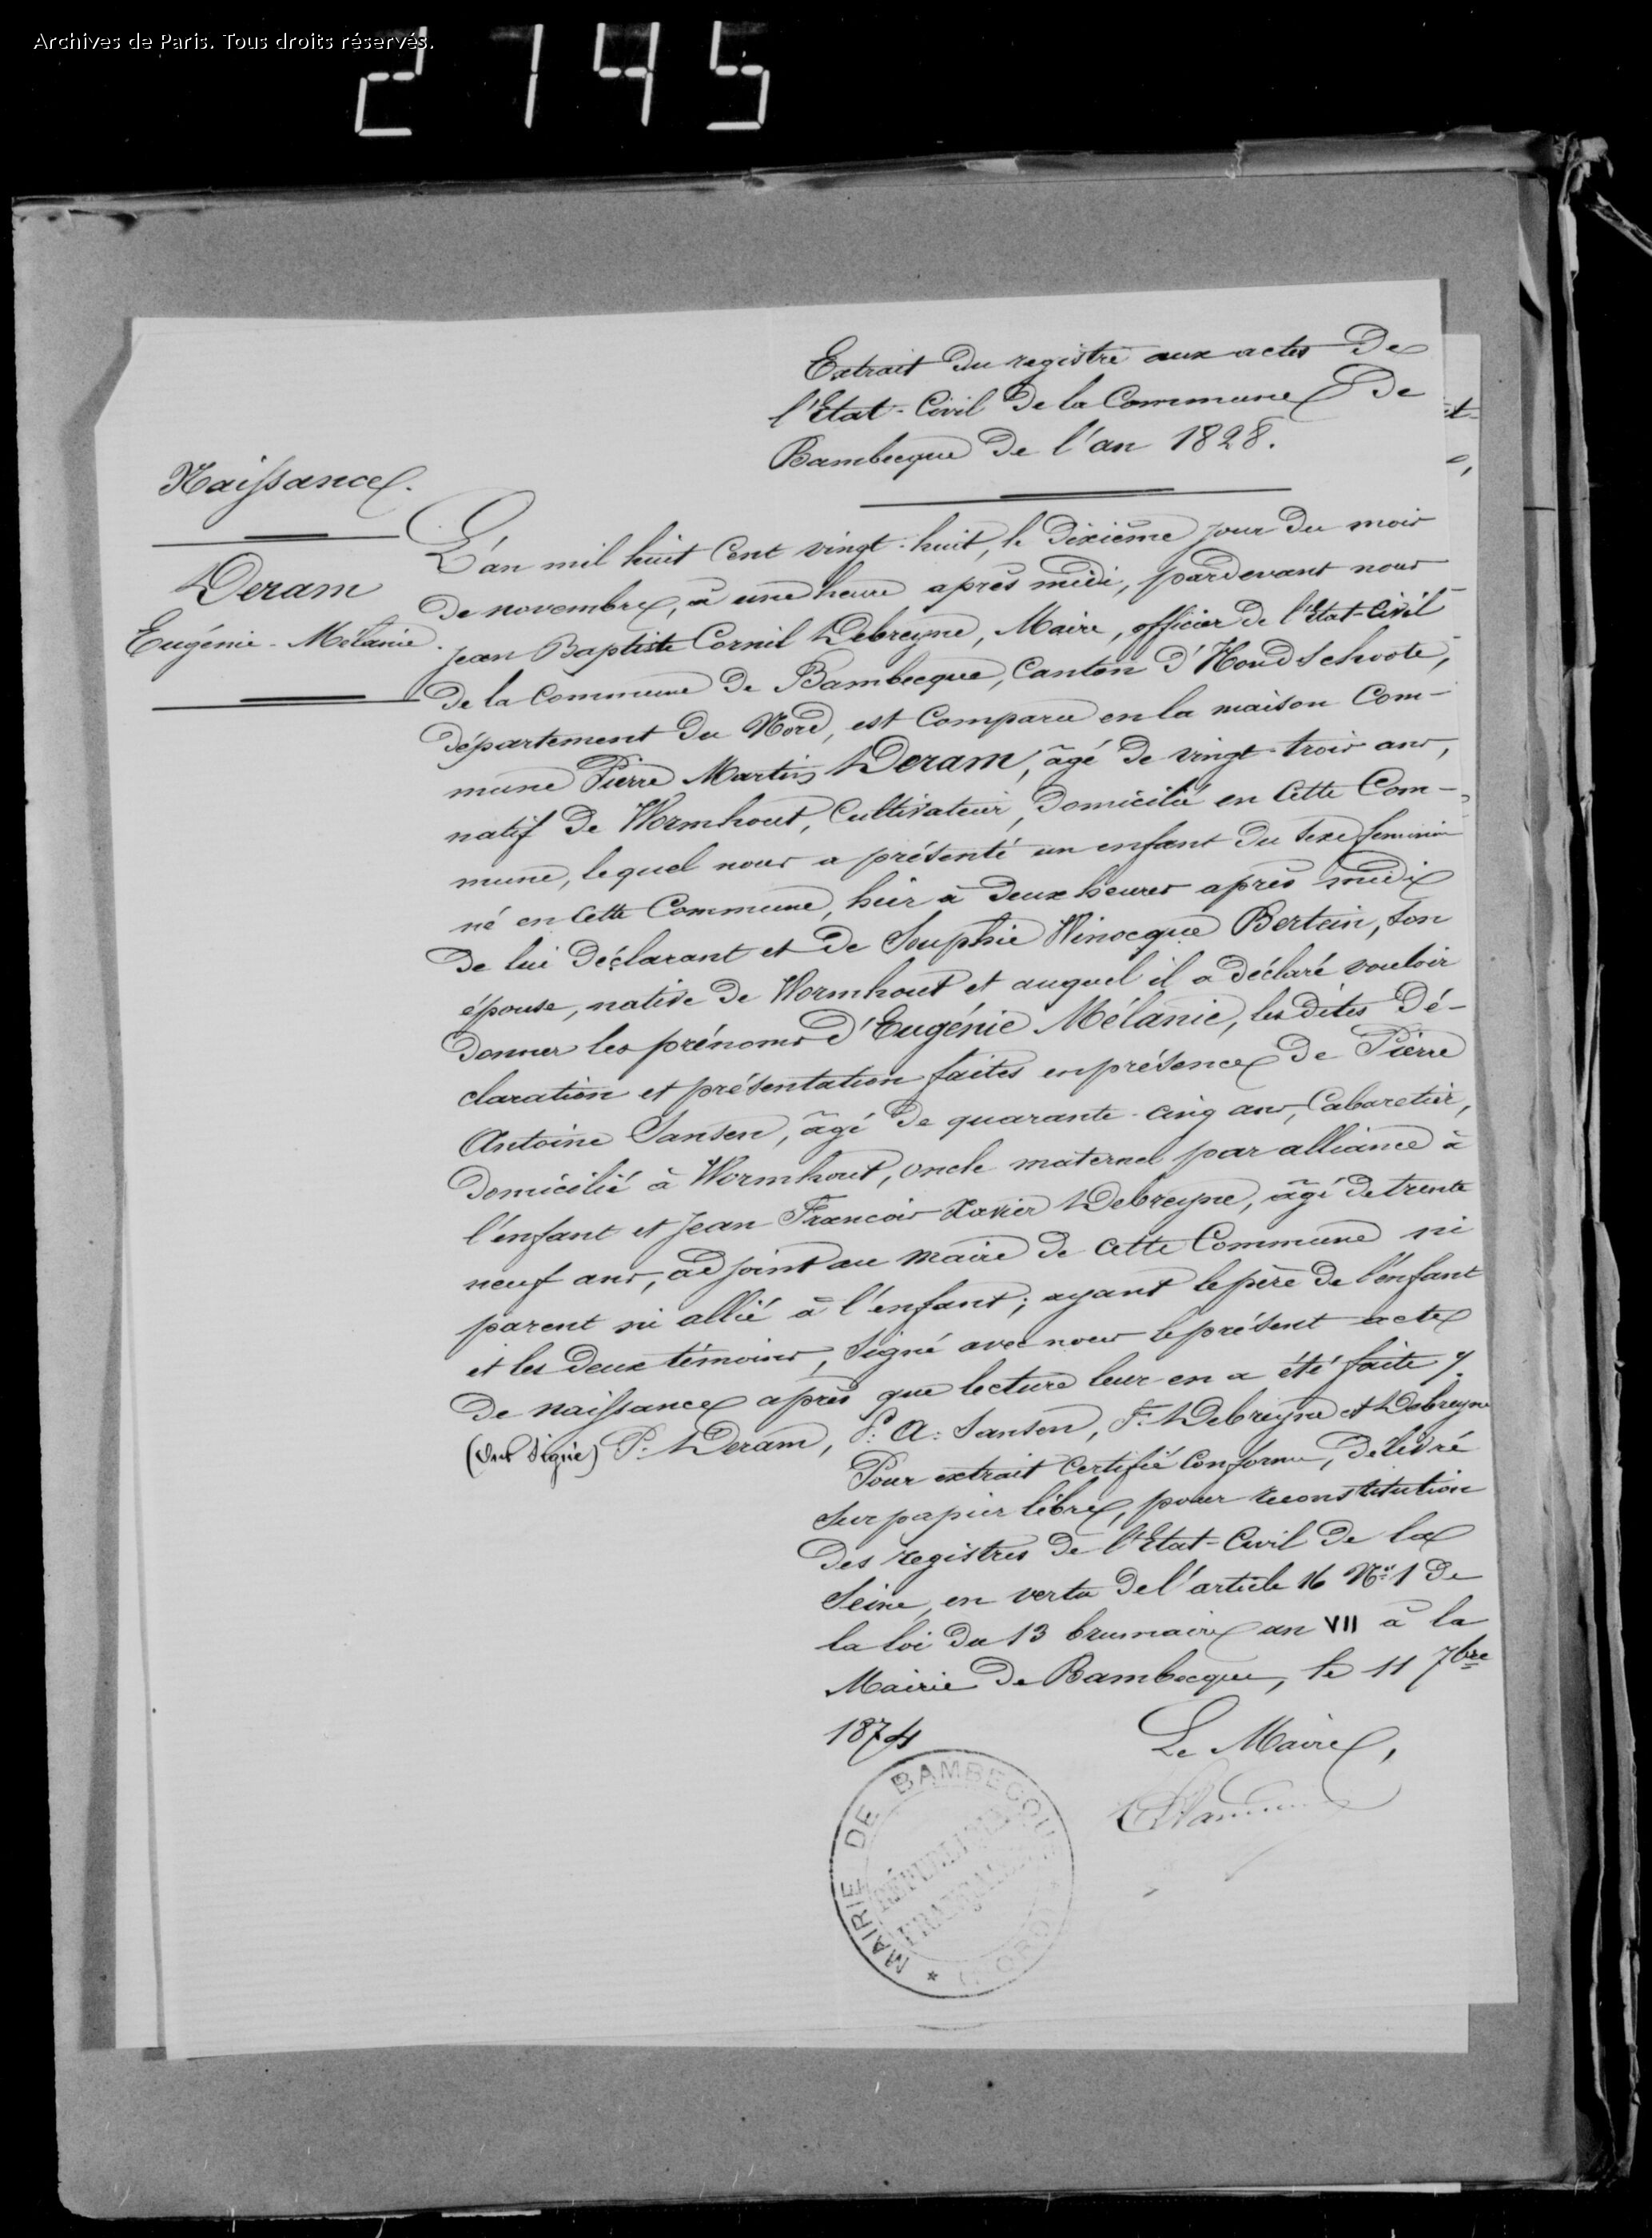 Archives de Paris. Tous droits réservés.
2745
Extrait du registre aux actes de
l'Etat-Civil de la Commune de
Bambecque de l'an 1828.
Naissance.
Deram
Eugénie-Mélanie.
L'an mil huit cent vingt-huit, le dixième jour du mois
de novembre, à une heure après midi, pardevant nous
Jean Baptiste Cornil Debreyne, Maire, officier de l'Etat-Civil
de la Commune de Bambecque, Canton d'Hondschoote,
département du Nord, est comparu en la maison Com-
mune Pierre Martin Deram, âgé de vingt-trois ans,
natif de Wormhout, Cultivateur, domicilié en cette Com-
mune, lequel nous a présenté un enfant du sexe feminin
né en cette Commune, hier à deux heures après midi
de lui déclarant et de Souphie Winocque Bertein, son
épouse, native de Wormhout et auquel il a déclaré vouloir
donner les prénoms d'Eugénie Mélanie, les dites dé-
claration et présentation faites en présence de Pierre
Antoine Sansen, âgé de quarante-cinq ans, Cabaretier,
domicilié à Wormhout, oncle maternel par alliance à
l'enfant et Jean François Xavier Debreyne, âgé de trente
neuf ans, adjoint au maire de cette Commune ni
parent ni allié à l'enfant; ayant le père de l'enfant
et les deux témoins, signé avec nous le présent acte
de naissance après que lecture leur en a été faite
(ont signé) P. Deram, P: A: Sansen, F. Debreyne et Debreyne
Pour extrait certifié conforme, délivré
sur papier libre, pour reconstitution
des registres de l'Etat-Civil de la
Seine, en vertu de l'article 16 N° 1 de
la loi du 13 brumaire an VII à la
Mairie de Bambecque, le 11 7bre
1874
Le Maire,
MAIRIE DE BAMBECQUE
RÉPUBLIQUE
FRANÇAISE
(NORD)